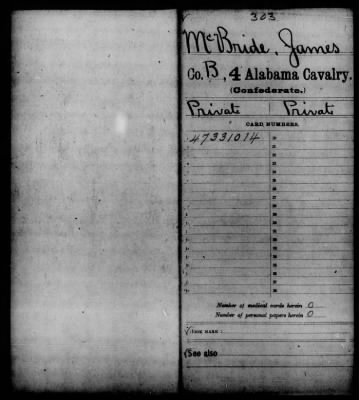 303
McBride, James
Co. B, 4 Alabama Cavalry.
(Confederate.)
Private Private
CARD NUMBERS.
47331014
Number of medical cards herein 0
Number of personal papers herein 0
BOOK MARK:
See also